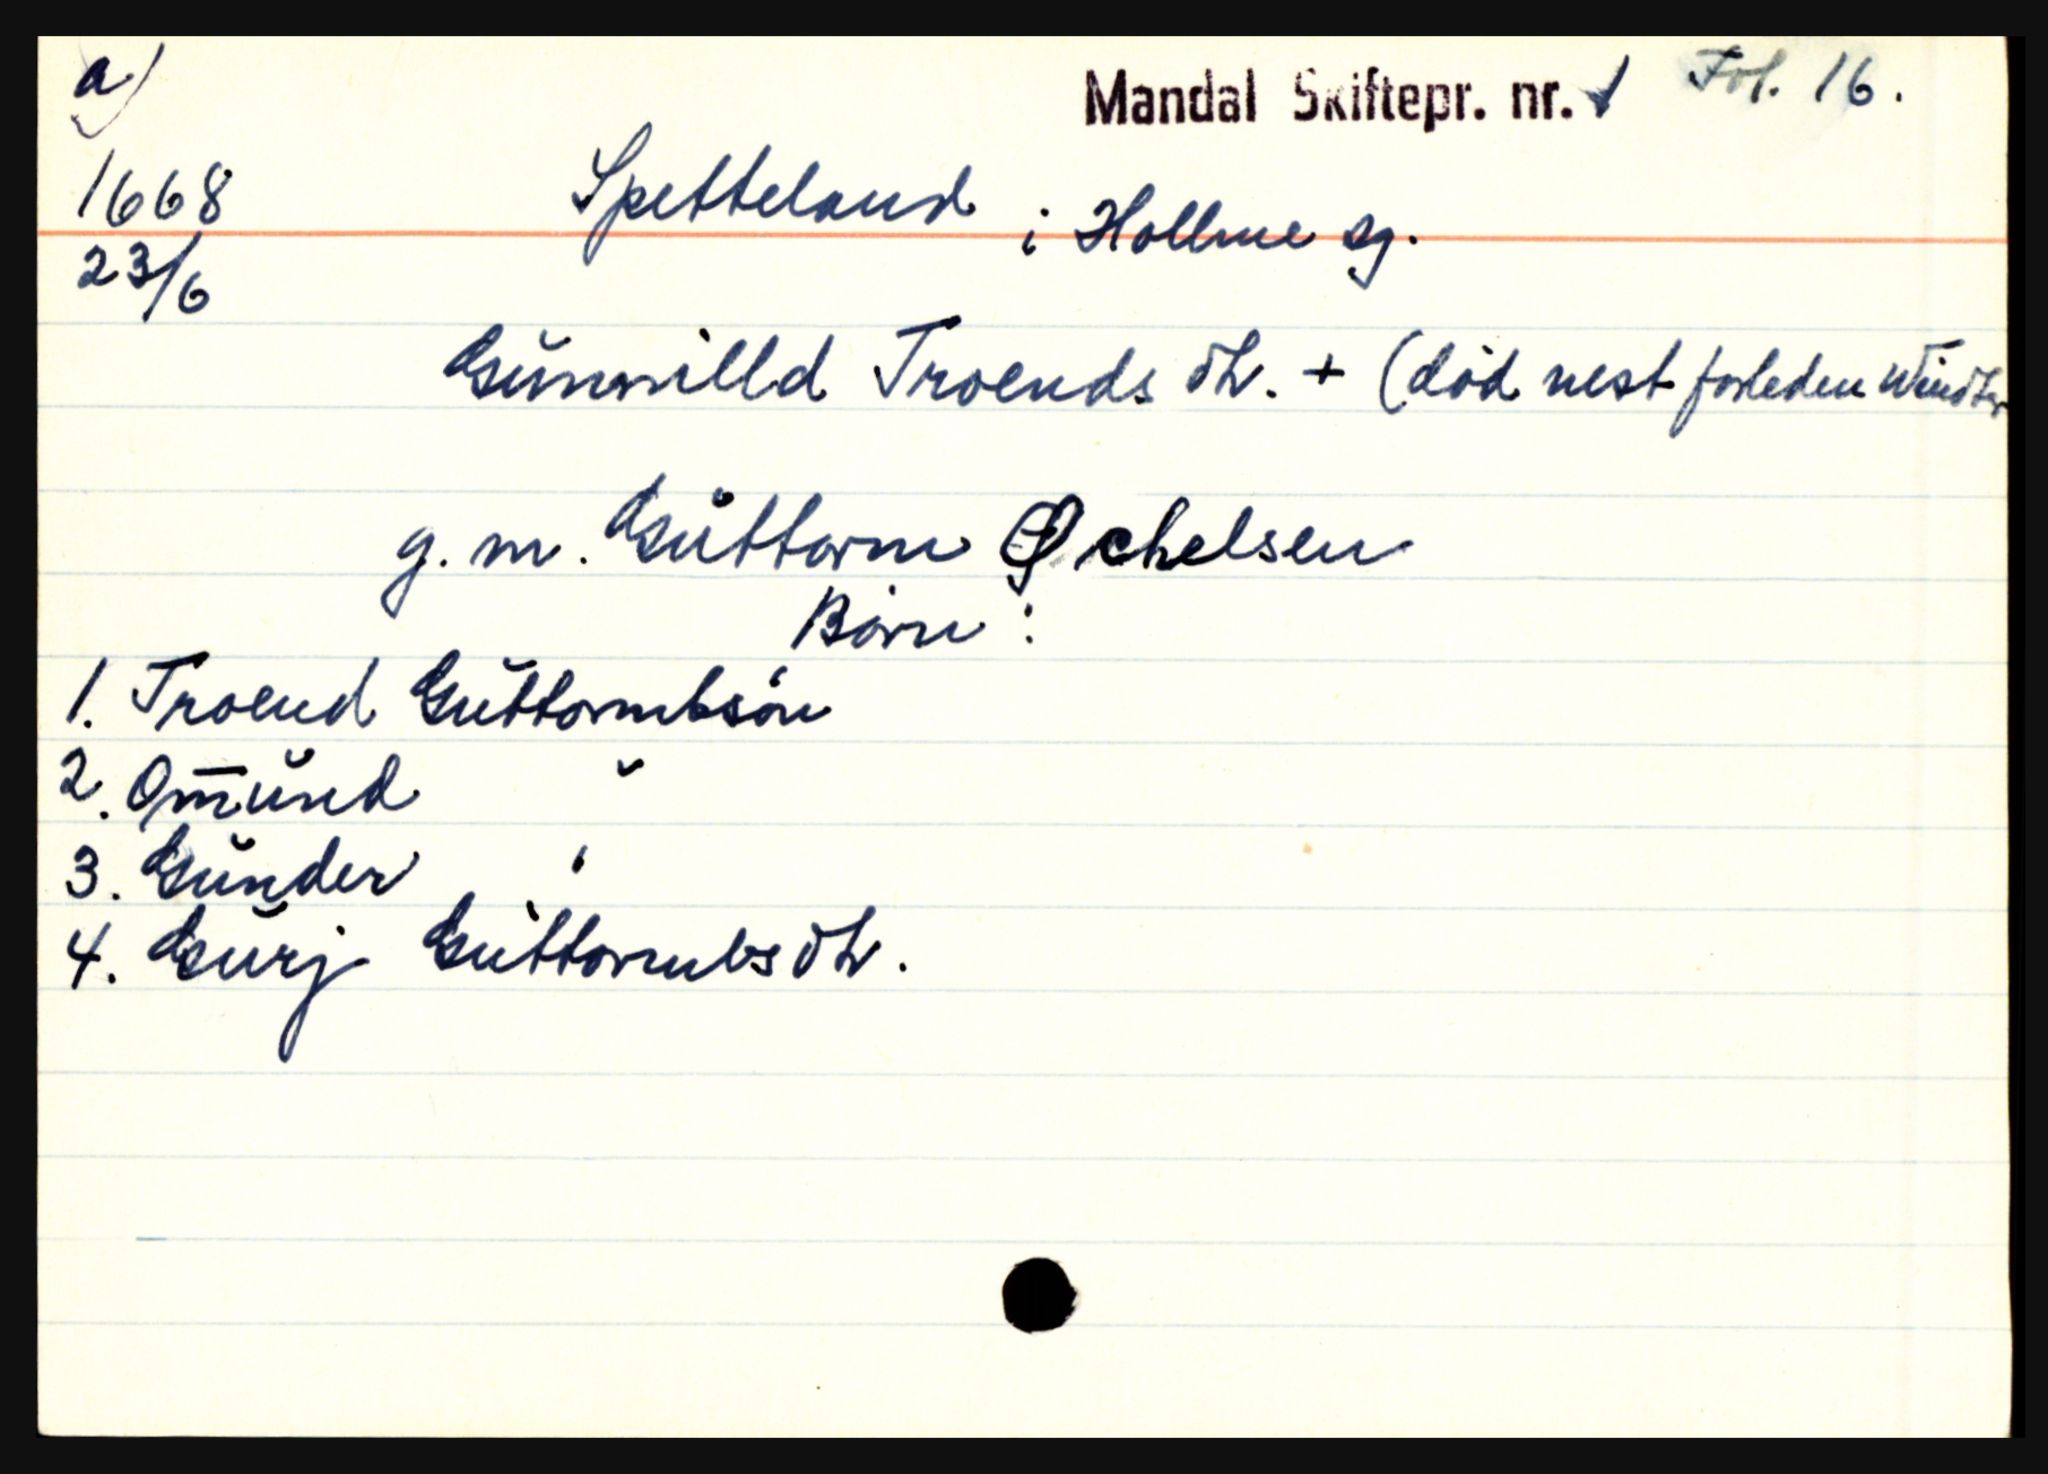 a)
Mandal Skiftepr. nr. 1 Fol. 16.
1668
23/6
Spetteland i Hollme sg.
Gŭnnilld Troends dtr. + (död nest forleden Windter
g. m. Gŭttorm Øchelsen
Börn :
1. Troend Gŭttormbsön
2. Om̅ŭnd "
3. Gŭnder "
4. Gŭrj Gŭttormbsdtr.